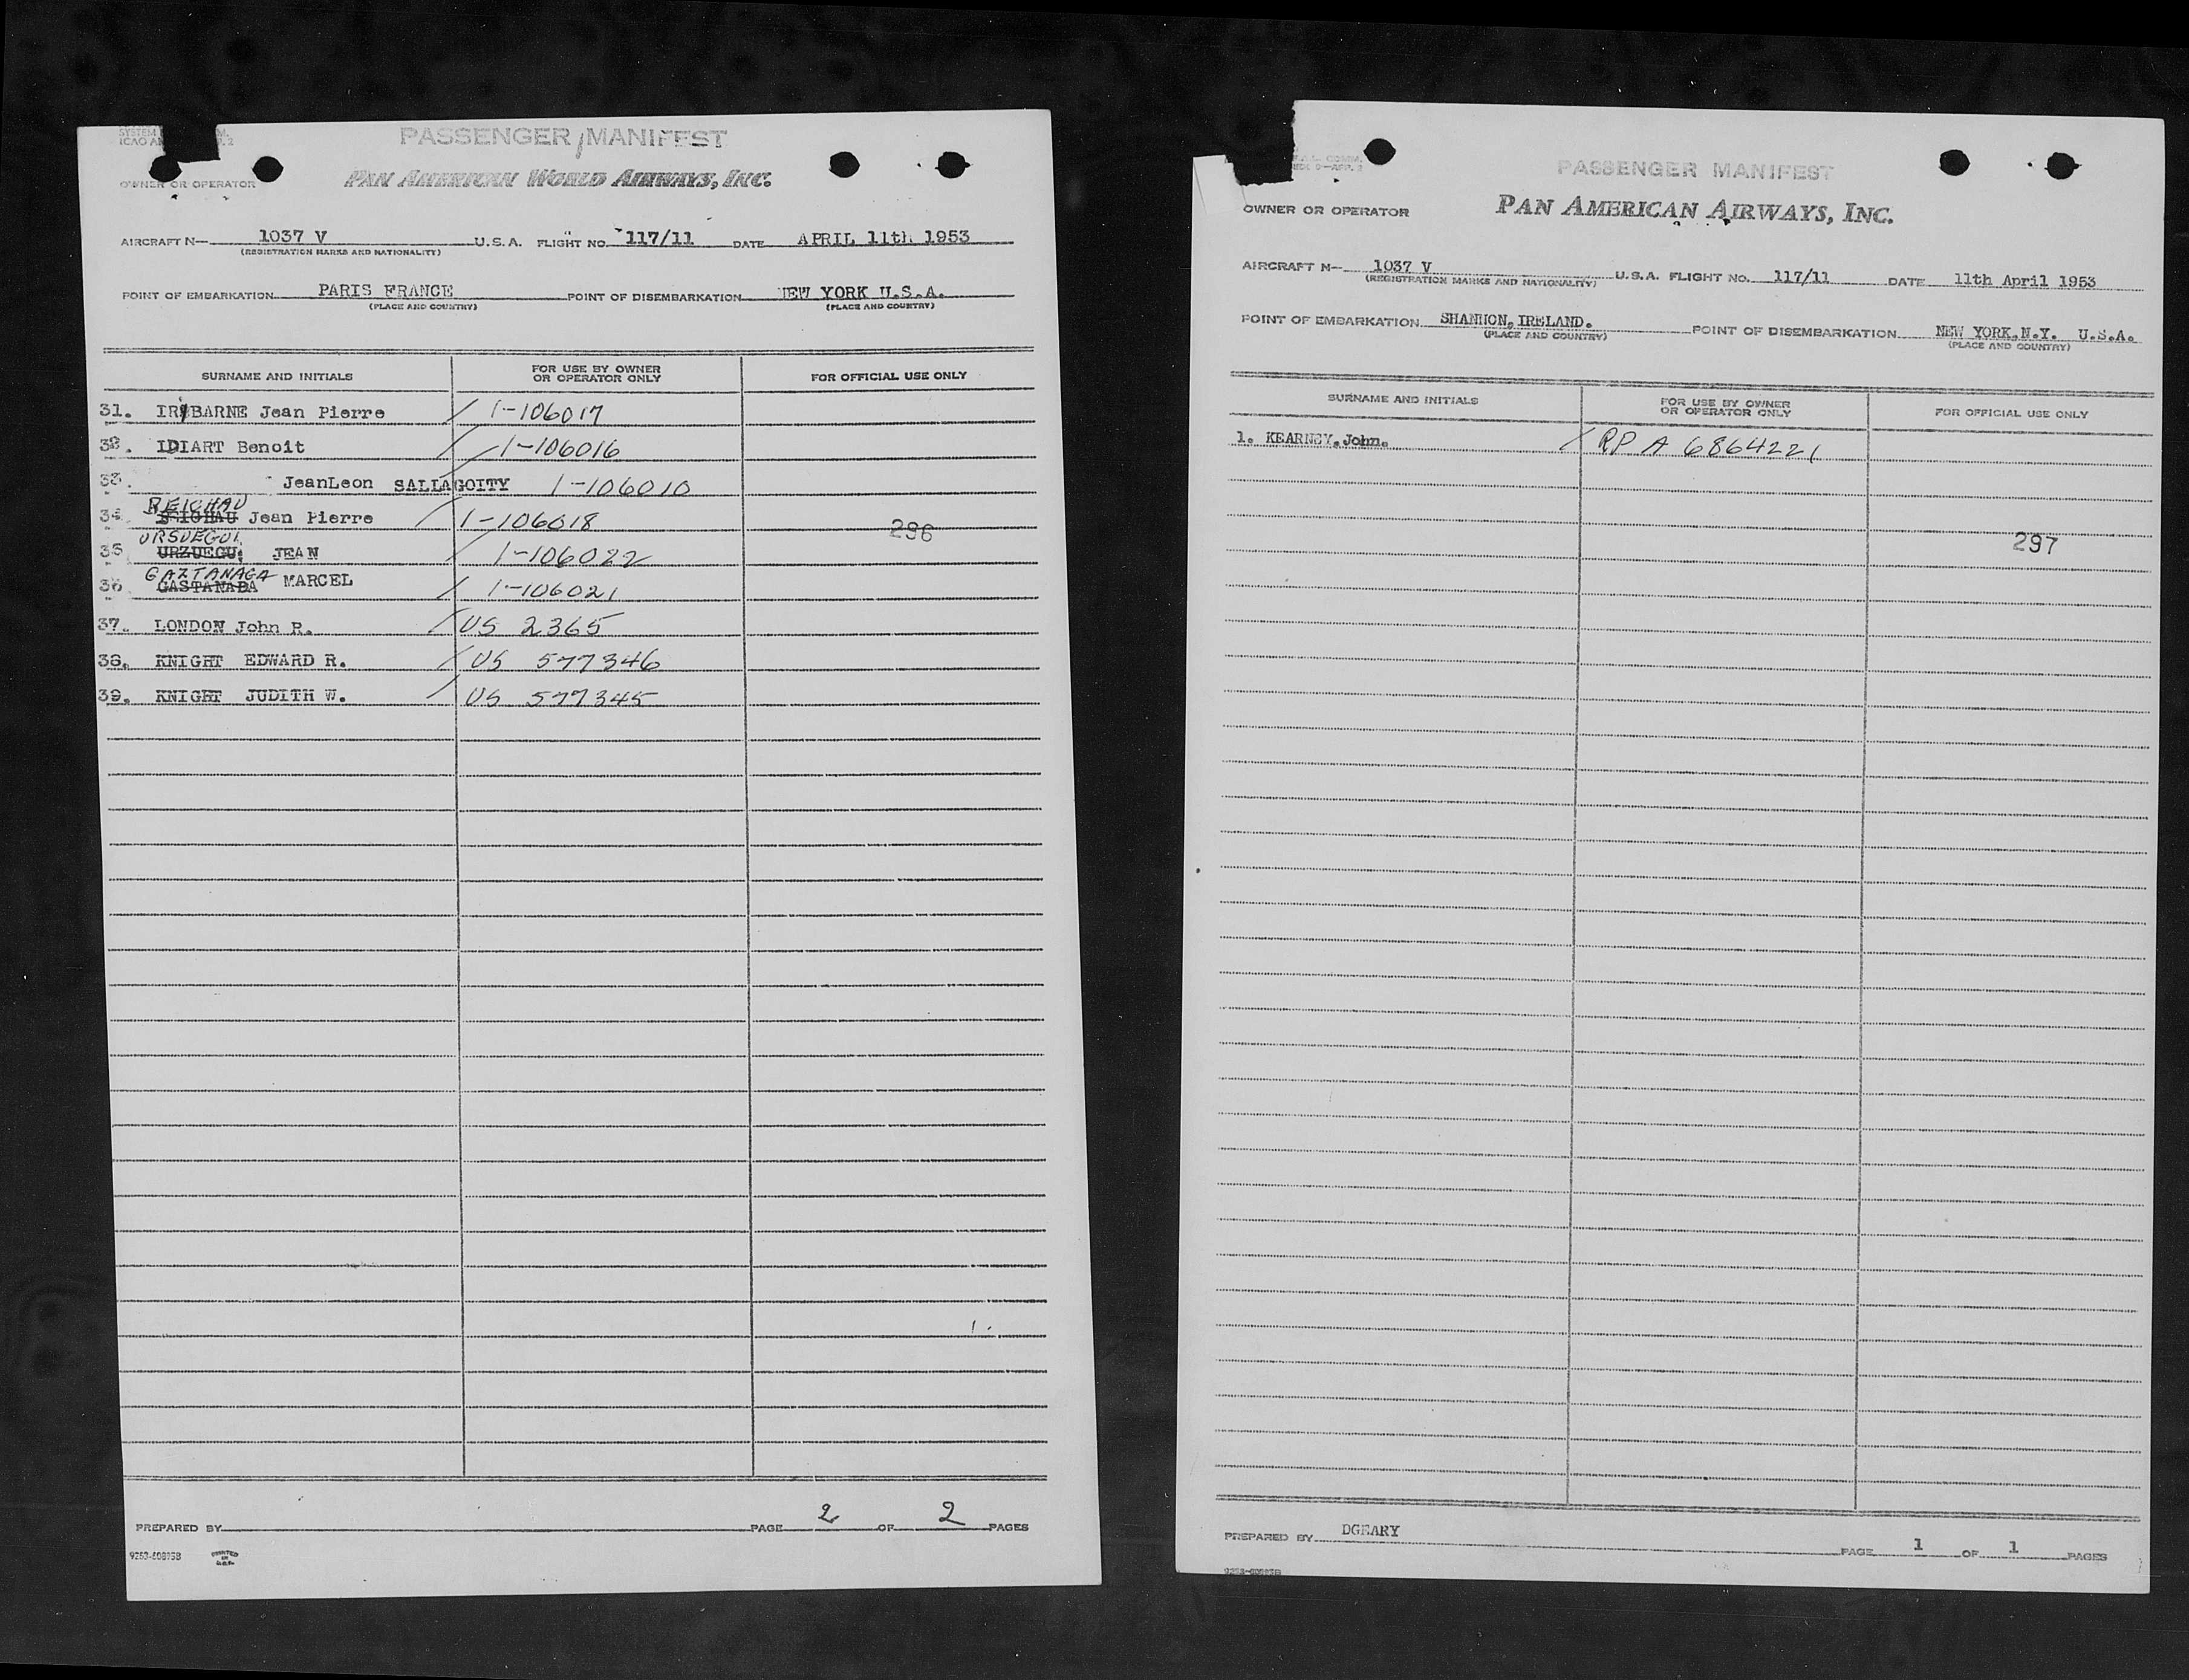 SYSTEM M.
ICAO AN P. 2
PASSENGER MANIFEST
OWNER OR OPERATOR PAN AMERICAN WORLD AIRWAYS, INC.
AIRCRAFT N— 1037 V U.S.A. FLIGHT NO. 117/11 DATE APRIL 11th 1953
(REGISTRATION MARKS AND NATIONALITY)
POINT OF EMBARKATION PARIS FRANCE POINT OF DISEMBARKATION NEW YORK U.S.A.
(PLACE AND COUNTRY) (PLACE AND COUNTRY)
SURNAME AND INITIALS FOR USE BY OWNER OR OPERATOR ONLY FOR OFFICIAL USE ONLY
31. IRIBARNE Jean Pierre / 1-106017
32. IDIART Benoit / 1-106016
33. JeanLeon SALLAGOITY 1-106010
REICHAU
34. Jean Pierre / 1-106018
296
URSUEGUI
35 URZUEGU JEAN / 1-106022
GAZTANAGA
36. GASTANABA MARCEL / 1-106021
37. LONDON John R. / US 2365
38. KNIGHT EDWARD R. / US 577346
39. KNIGHT JUDITH W. / US 577345
PREPARED BY PAGE 2 OF 2 PAGES
PRINTED IN U.S.A.
PASSENGER MANIFEST
OWNER OR OPERATOR PAN AMERICAN AIRWAYS, INC.
AIRCRAFT N— 1037 V U.S.A. FLIGHT NO. 117/11 DATE 11th April 1953
(REGISTRATION MARKS AND NATIONALITY)
POINT OF EMBARKATION SHANNON, IRELAND. POINT OF DISEMBARKATION NEW YORK, N.Y. U.S.A.
(PLACE AND COUNTRY) (PLACE AND COUNTRY)
SURNAME AND INITIALS FOR USE BY OWNER OR OPERATOR ONLY FOR OFFICIAL USE ONLY
1. KEARNEY, John. / RP A 6864221
297
PREPARED BY DGEARY PAGE 1 OF 1 PAGES